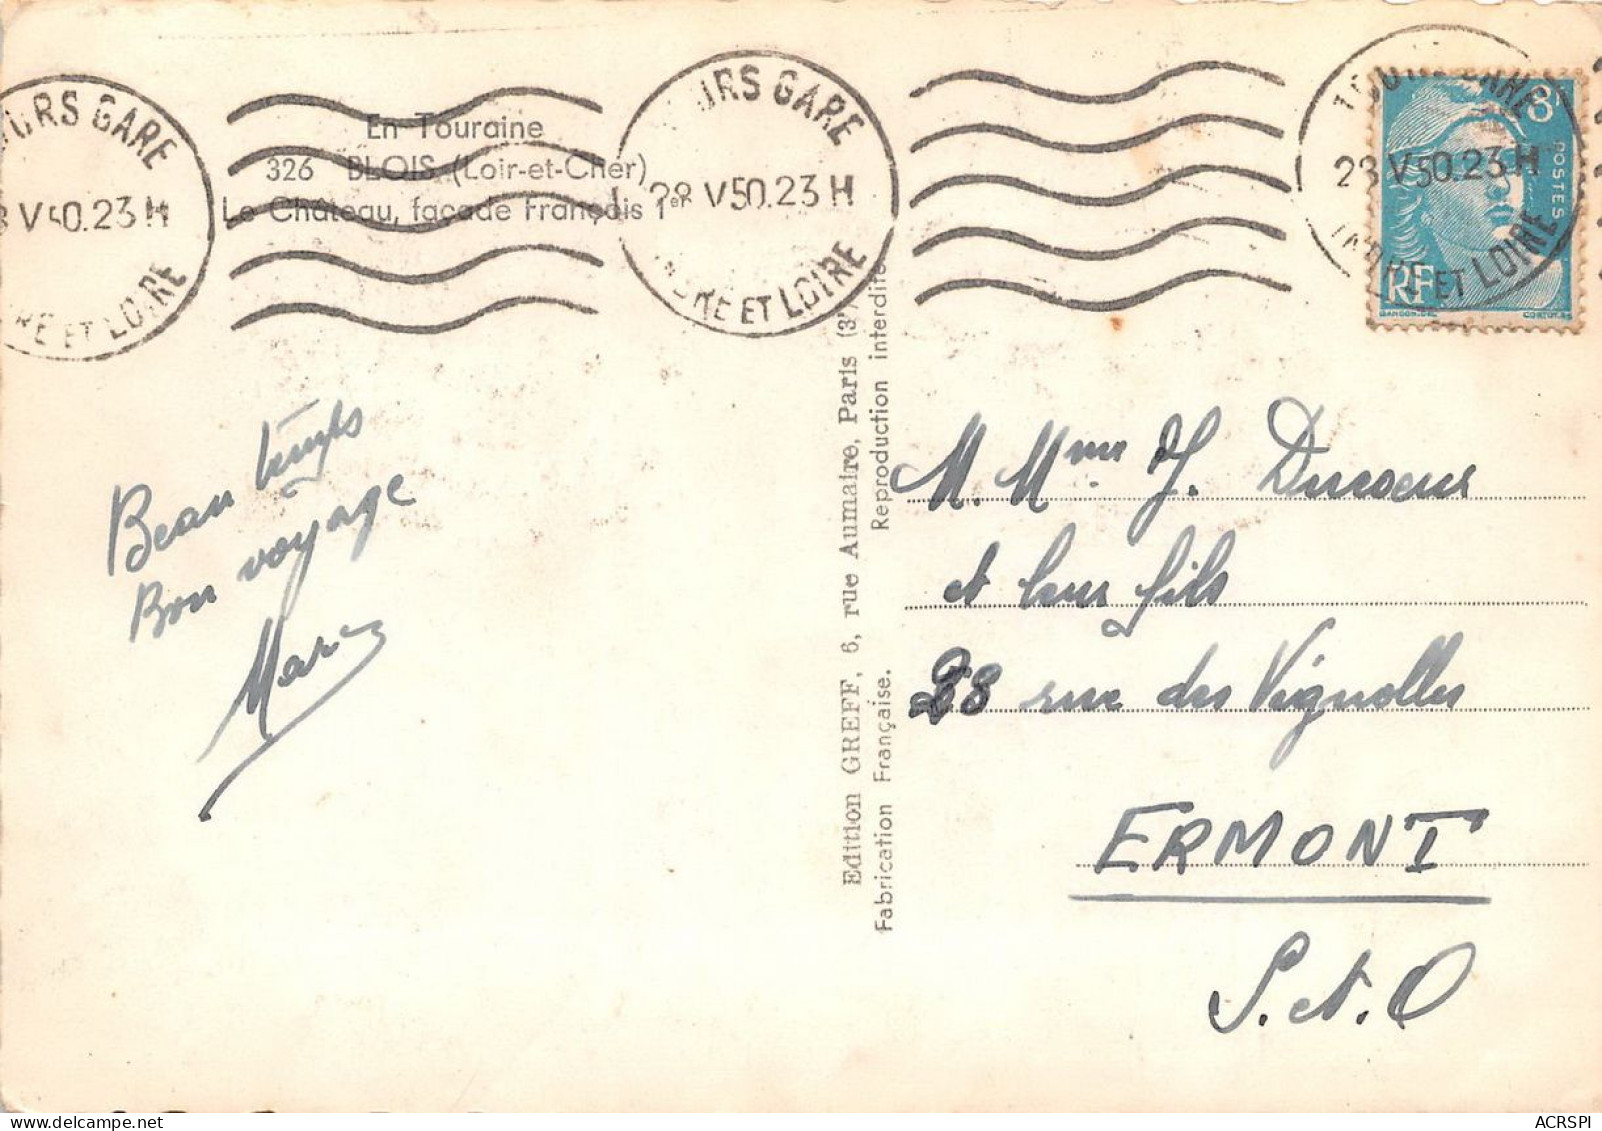 En Touraine
326 BLOIS (Loir-et-Cher)
Le Château, façade François 1er
URS GARE
V 50.23 H
RE ET LOIRE
URS GARE
28 V50.23 H
INDRE ET LOIRE
TOURS GARE
28 V50.23 H
INDRE ET LOIRE
8F
POSTES
RF
GANDON.DEL
Beau temps
Bon voyage
Edition GREFF, 6, rue Aumaire, Paris (3e)
Fabrication Française. Reproduction interdite
M. Mme J. Ducoeur
et leur fils
28 rue des Vignolles
ERMONT
S. et. O
ACRSPI